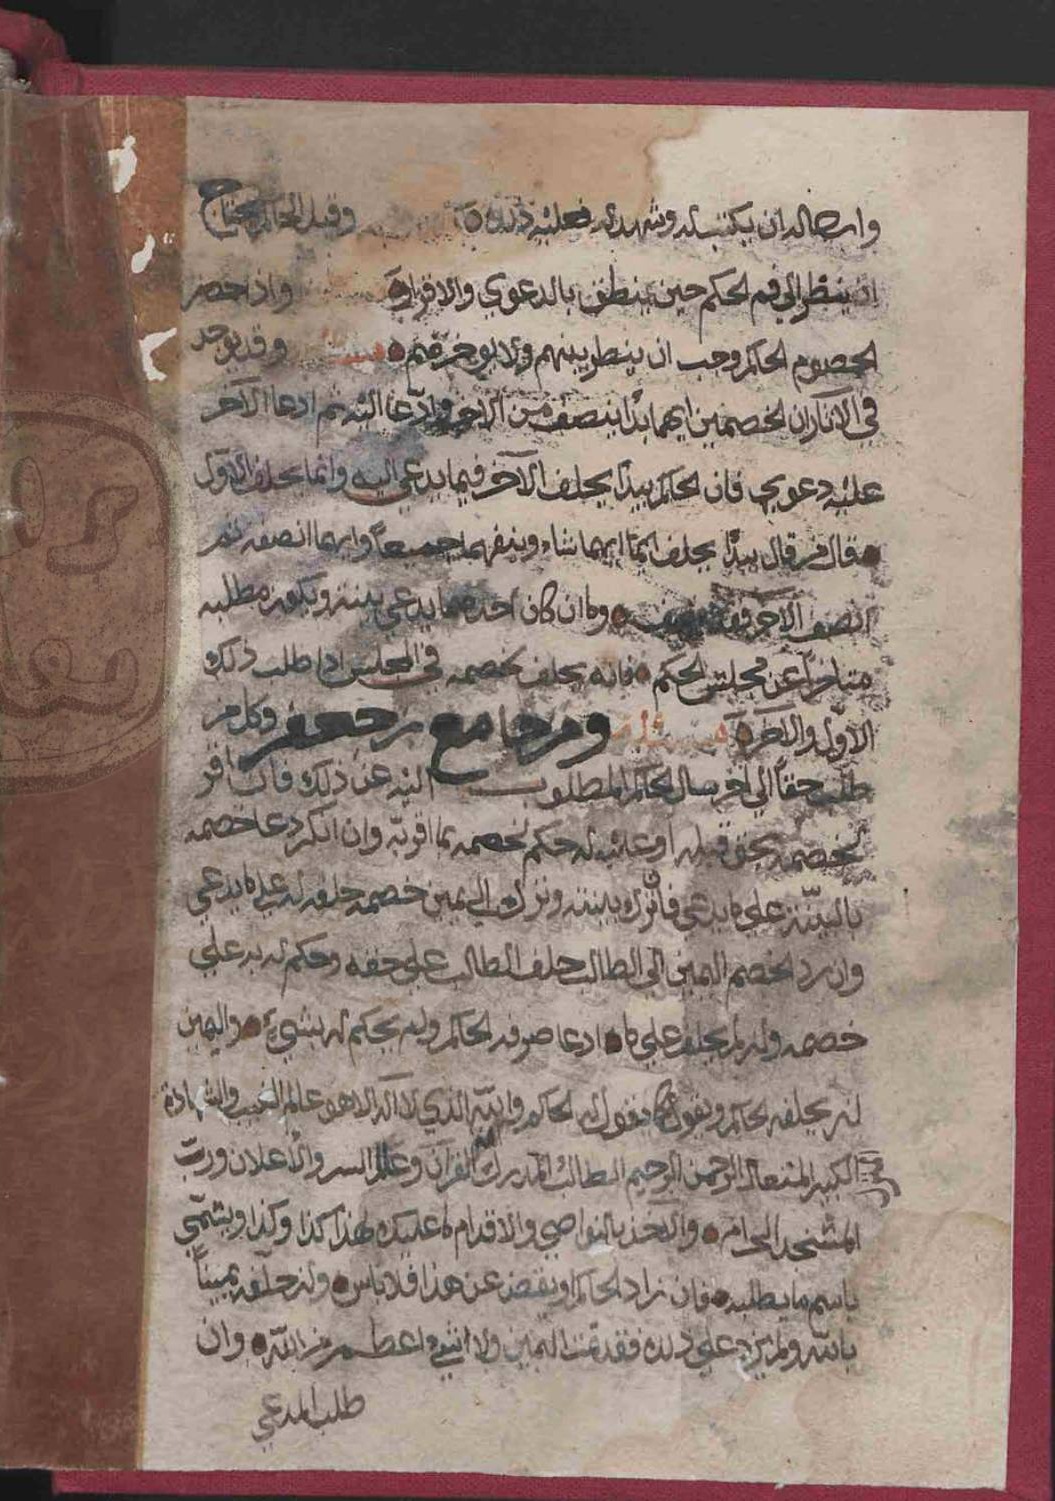 وان صالدان يكتب له ويشهد له فعليه ذلك وقيل الحاكم يحتاج
ان ينظر الى فم الحكم حين ينطق بالدعوي والاقرار واذا حضر
الخصوم الحاكم وجب ان ينظر بينهم ولا يؤخرهم وقد يوجد
في الاثار ان الخصمين ايهما بدا ينصف من الاخر ثم ادعا الآخر
عليه دعوي فان الحاكم يبدأ يحلف الآخر فيما يدعي اليه وانما يحلف الاول
قال من قال يبدأ يحلف ايهما شاء جميعاً وايهما انصفه ثم
انصف الآخر فقد وان كان احدهما يدعي بينة ويكون مطلبه
متاخراً عن مجلس الحكم فانه يحلف خصمه في المجلس اذا طلب ذلك
الاول والآخر مسئلة ومن جامع بن جعفر وكل من
طلب حقاً الى اخر سال الحاكم المطلوب اليه عن ذلك فان اقر
لخصمه بحق قبله او عليه له حكم لخصمه بما اقر به وان انكر دعا خصمه
بالبينة على ما يدعي فان ترك بينته ونزل الى يمين خصمه حلفه له على ما يدعي
وان رد الخصم اليمين الى الطالب حلف الطالب على حقه وحكم له به على
خصمه وان لم يحلف على ما ادعا صرفه الحاكم ولم يحكم له بشيء واليمين
ان يحلفه الحاكم ويقول كما يقول له الحاكم والله الذي لا اله الا هو عالم الغيب والشهادة
الكبير المتعال الرحمن الرحيم الطالب المدرك القرآن وعالم السر والاعلان ورب
المسجد الحرام والآخذ بالنواصي والاقدام ما عليك لهذا كذا وكذا ويسمي
باسم ما يطلبه فان زاد الحاكم او نقص عن هذا فلا باس وان حلفه يميناً
بالله ولم يزد على ذلك فقد تمت اليمين ولا شيء اعظم من الله وان
طلب المدعي